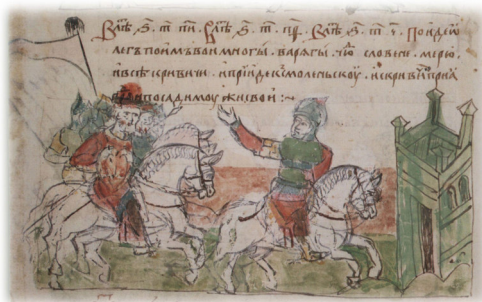 В лѣⷮ ҂ѕ҃ т҃ п҃и. В лѣⷮ ҂ѕ҃ т҃ п҃ѳ. В лѣⷮ ҂ѕ҃ т҃ ч҃. Поиде ѡ
легъ поимъ вои многы. варѧгы. чю словесн. мерю
и всѣ кривичи. и приде къ смоленьскоу и кривич. приꙗ
и посади моужи свои :~